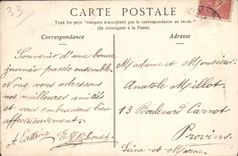 33
CARTE POSTALE
Tous les pays étrangers n'acceptent pas la correspondance au recto.
(Se renseigner à la Poste).
Correspondance
Adresse
Souvenir d'une bonne
journée passée ensemble
Nous vous adressons
nos meilleures amitiés
et vous embrassons bien
affectueusement
Madame et Monsieur
Anatole Millot
13 Boulevard Carnot
Provins
Seine et Marne